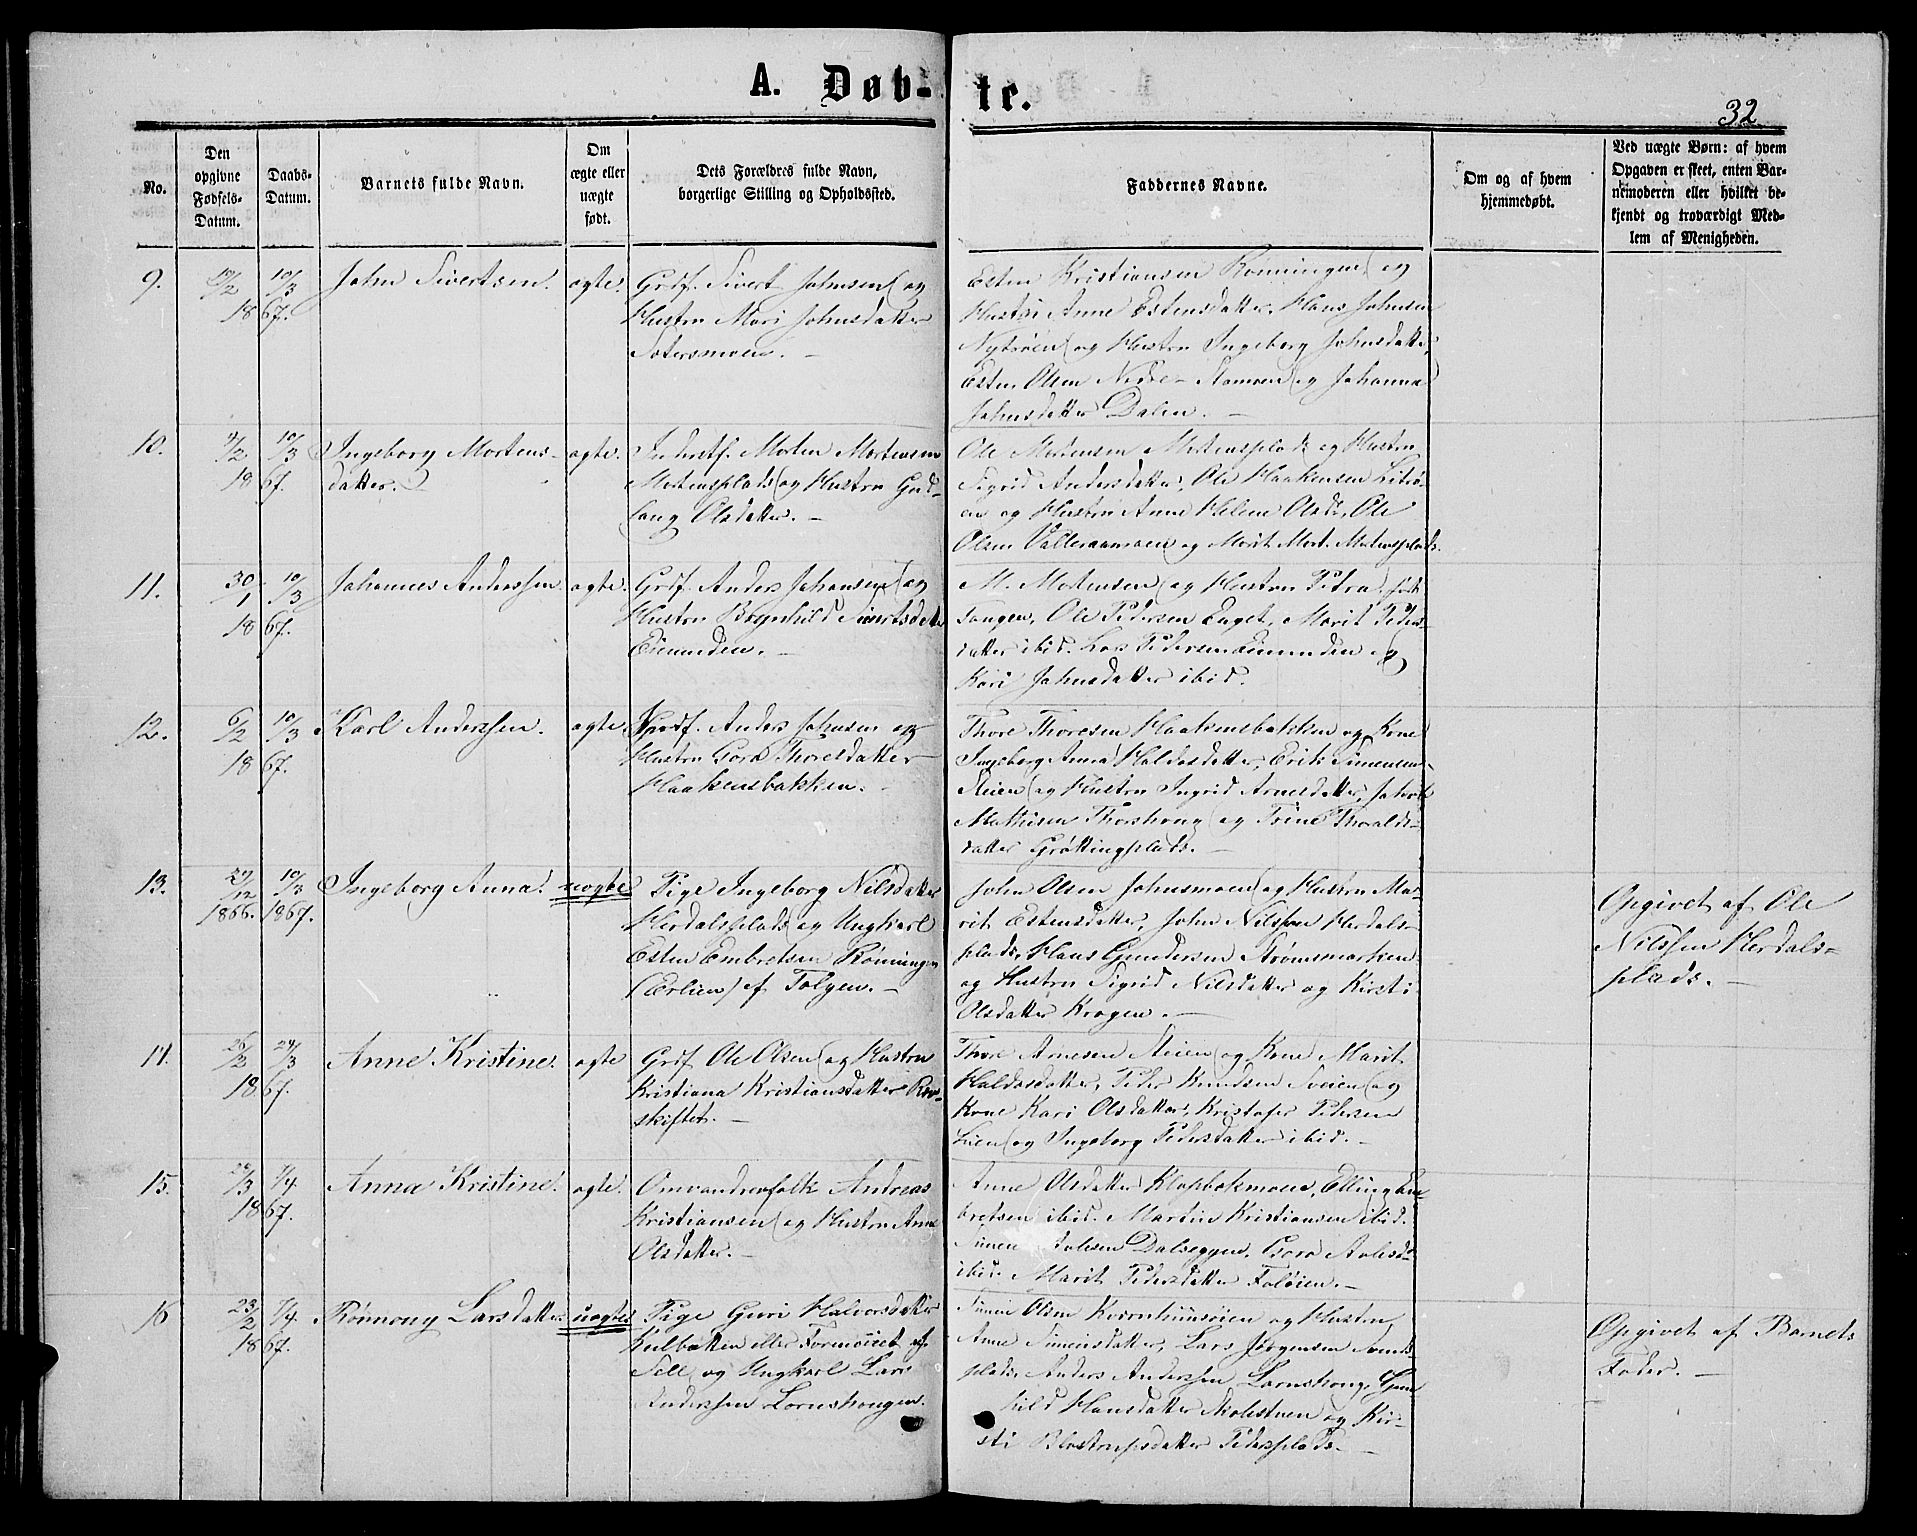 A. Døb-
te.
32
No.
Den
opgivne
Fødsels-
Datum.
Daabs-
Datum.
Barnets fulde Navn.
Om
ægte eller
uægte
født.
Dets Forældres fulde Navn,
borgerlige Stilling og Opholdssted.
Faddernes Navne.
Om og af hvem
hjemmedøbt.
Ved uægte Børn: af hvem
Opgaven er skeet, enten Bar-
nemoderen eller hvilket be-
kjendt og troværdigt Med-
lem af Menigheden.
9.
10/3
1867.
John Sivertsen.
ægte.
Grdf. Sivert Johnsen og
Hustru Mari Johnsdatter
Esten Kristiansen Rønningen og
Hustru Anne Estensdatter, Hans Johnsen
Nytrøen og Hustru Ingeborg Johnsdatter,
Esten Olsen Nedre- og Johanna
Johnsdatter Dalen. —
10.
10/3
1867.
Ingeborg Mortens-
datter.
ægte.
Morten Mortensen
Mortensplads og Hustru Gud-
laug Olsdatter. —
Ole Mortensen Mortensplads og Hustru
Sigrid Andersdatter, Ole Haakensen
og Hustru Anne Helene Olsd., Ole
Olsen og Marit Mort. Mortensplads.
11.
30/1
10/3
1867.
Johannes Anderssen
ægte.
Grdf. Anders Johansen og
Hustru Brynhild Sivertsdatter
Eiemnden. —
M. Mortensen og Hustru Petra
Ole Pedersen Enget, Marit Peders-
datter ibid. Lars Pedersen og
Kari Johnsdatter ibid.
12.
6/2
10/3
1867.
Karl Anderssen.
ægte.
Anders Johnsen og
Hustru Goro Thoresdatter
Haakensbakken. —
Thore Thoresen Haakensbakken og Kone
Ingeborg Anna Haldosdatter, Erik Simensen
Steien og Hustru Ingrid Arnesdatter, Jakob
Mathisen Thorshaug og Trine Thoralds-
datter Grøttingplads. —
13.
27/12
1866.
10/3
1867.
Ingeborg Anna.
uægte
Pige Ingeborg Nilsdatter
Herdalsplads og Ungkarl
Esten Embretsen Rønningen
(Erlien) af Tolgen. —
John Olsen Johnsmoen og Hustru Ma-
rit Estensdatter, John Nilssen Herdals-
plads, Hans Gundersen Strømsmarken
og Hustru Sigrid Nilsdatter og Kirsti
Olsdatter Krogen. —
Opgivet af Ole
Nilssen Herdals-
plads. —
14.
26/2
24/3
1867.
Anne Kristine.
ægte
Grdf Ole Olsen og Hustru
Kristiana Kristiansdatter
skiftet. —
Thore Arnesen Steien og Kone Marit
Haldosdatter, Peder Knudsen Sveien og
Kone Kari Olsdatter, Kristofer Pedersen
Lien og Ingeborg Pedersdatter ibid. —
15.
7/4
1867.
Anna Kristine.
ægte.
Omvandrerfolk Andreas
Kristiansen og Hustru Anne
Olsdatter. —
Anne Olsdatter Klopbakmoen, Elling Em-
bretsen ibid. Martin Kristiansen ibid.
Simen Dalseggen,
ibid. Marit Pedersdatter —
16
23/2
7/4
1867.
Rønnoug Larsdatter
uægte
Pige Guri Halvorsdatter
Kulbakken eller Formoiret af
Sell og Ungkarl Lars
Anderssen Lornshougen.
Simen Olsen og Hustru
Anne Simensdatter, Lars Jørgensen
plads, Anders Anderssen Lornshoug,
Hansdatter og Kir-
sti Pedersplads. —
Opgivet af Barnets
Fader. —